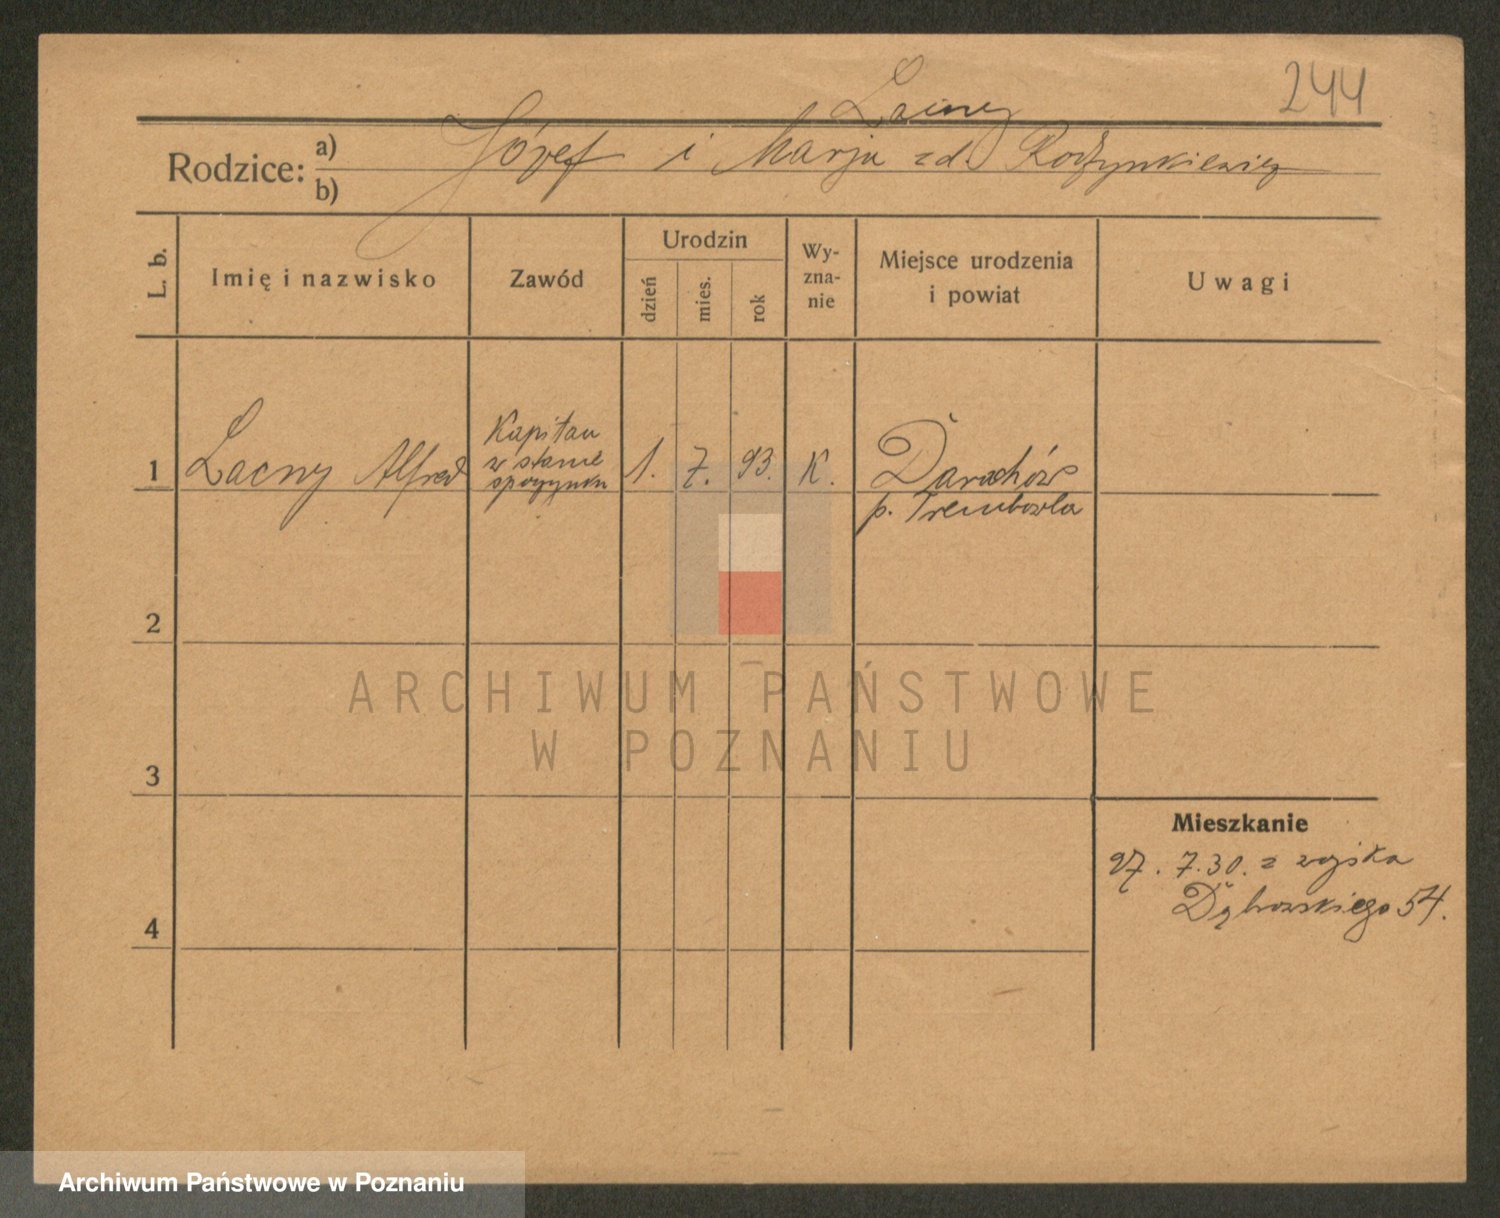 244
Lacny
Rodzice: a) b) Józef i Marja zd. Rodzynkiewicz
L. b.
Imię i nazwisko
Zawód
Urodzin
dzień
mies.
rok
Wy-
zna-
nie
Miejsce urodzenia
i powiat
Uwagi
1
Lacny Alfred
Kapitan
w stanie
spoczynku
1.
7.
93.
K.
Darachów
p. Trembowla
2
3
4
Mieszkanie
27. 7.30. z wojska
Dąbrowskiego 54.
ARCHIWUM PAŃSTWOWE
W POZNANIU
Archiwum Państwowe w Poznaniu